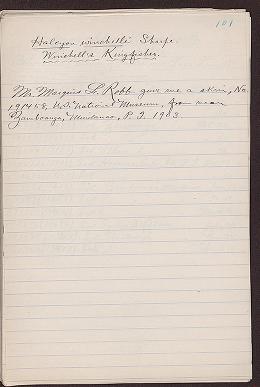 101
Halcyon winchelli Sharpe.
Winchell's Kingfisher.
Mr. Marquis L. Robb gave me a skin, No.
191458, U.S. National Museum, from near
Zamboanga, Mindanao, P. I. 1903